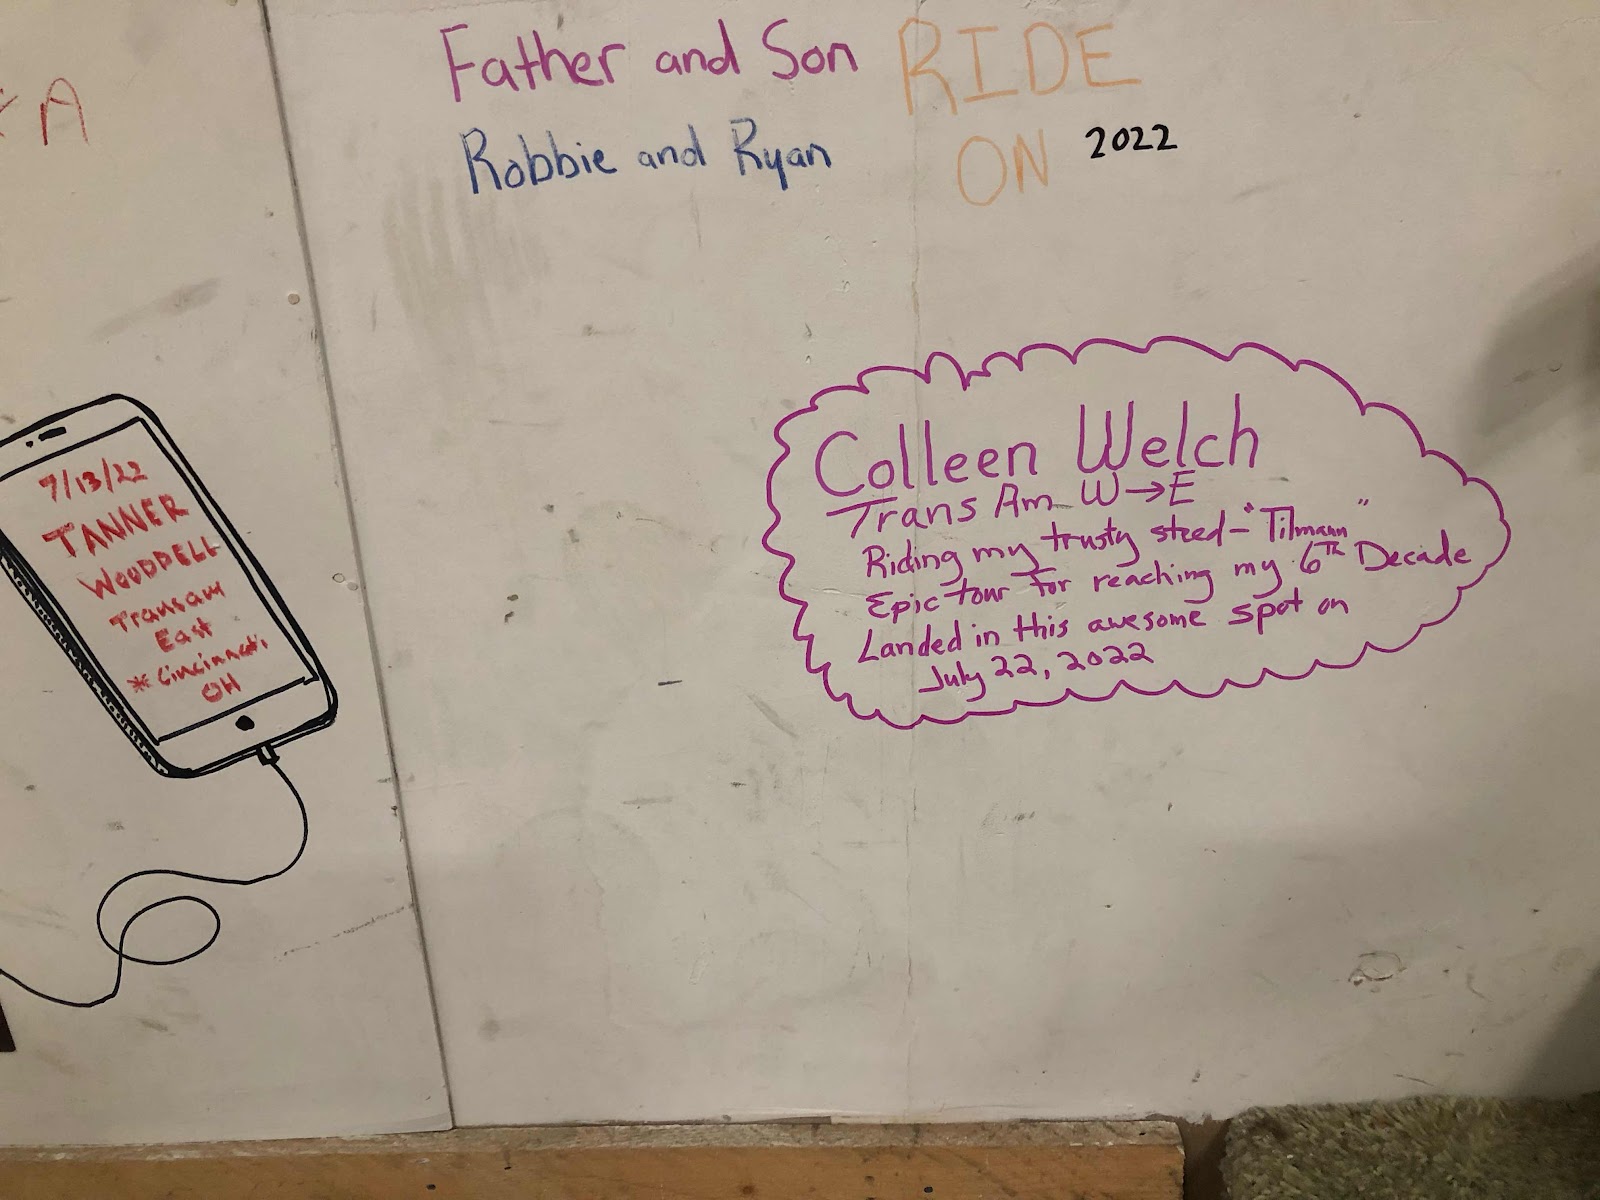 Father and Son
Robbie and Ryan
RIDE
ON 2022
A
7/13/22
TANNER
WOODDELL
Transam
East
* Cincinnati
OH
Colleen Welch
Trans Am W→E
Riding my trusty steed-"Tilmann"
Epic tour for reaching my 6TH Decade
Landed in this awesome spot on
July 22, 2022